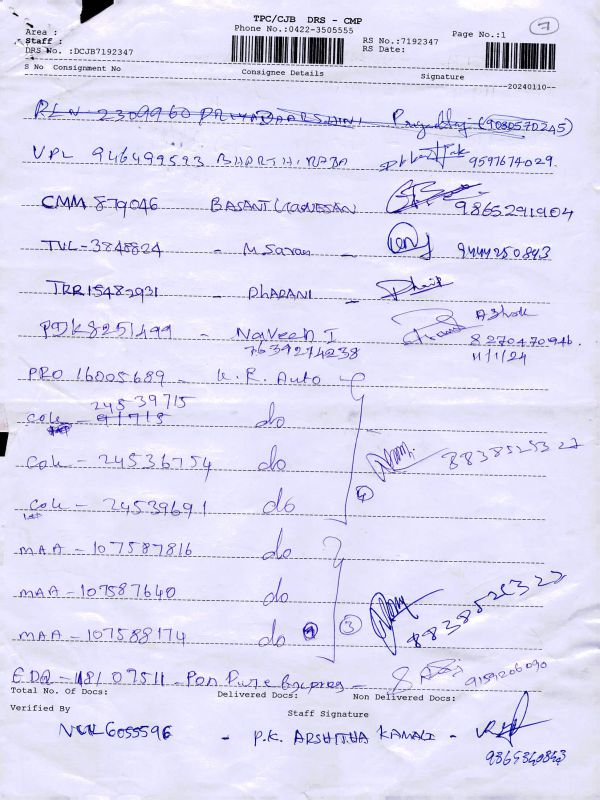 TPC/CJB DRS - CMP
7
Area :
Phone No.:0422-3505555
Staff :
RS No.:7192347
Page No.:1
DRS No. :DCJB7192347
RS Date:
S No Consignment No Consignee Details Signature
20240110
RLN - 2309960 PRIYADAARSHINI (9080570245)
VPL 946499523 9597674029
CMM 879046 BASANT GANESAN 9865291904
TVL-3848824 - M. Saran 9444250843
TRR15482931 - DhARANI -
Ashok
PDK8251499 - Naveen I 8270470946
7639274238 11/1/24
PRO 16005689 - K.R. Auto
24539715
COK - 91713 do
COK - 24536754 do 8838525322
COK - 24539691 do 4
MAA - 107587816 do
MAA - 107587640 do
MAA - 107588174 do 3 8838525322
EDQ - 18107511 - Pon Pure Express - 9159206090
Total No. Of Docs: Delivered Docs: Non Delivered Docs:
Verified By Staff Signature
6055596 - P.K. ARSHITHA KAMALI -
9365340843